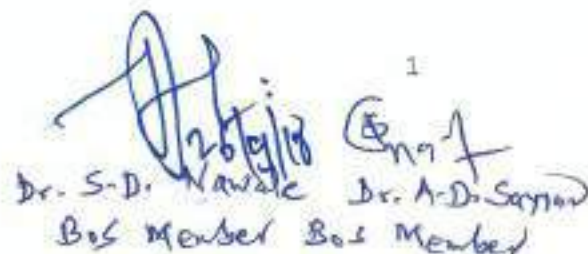 1
26/9/18
Dr. S-D. Nawale Dr. A-D. Sayyad
BoS Member BoS Member